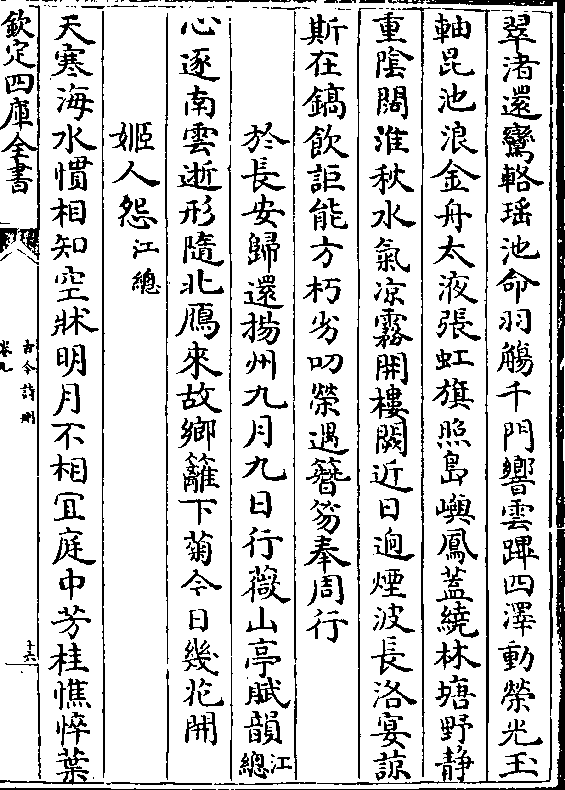 翠渚還鸞輅瑶池命羽觴千門響雲蹕四澤動榮光玉
軸昆池浪金舟太液張虹旗照島嶼鳳蓋繞林塘野静
重陰闊淮秋水氣凉霧開樓闕近日逈煙波長洛宴諒
斯在鎬飲詎能方朽劣叨榮遇簪笏奉周行
於長安歸還揚州九月九日行薇山亭賦韻江總
心逐南雲逝形隨北鴈來故鄉籬下菊今日幾花開
姬人怨江總
天寒海水慣相知空牀明月不相冝庭中芳桂憔悴葉
欽定四庫全書
古今詩刪
卷九
十六